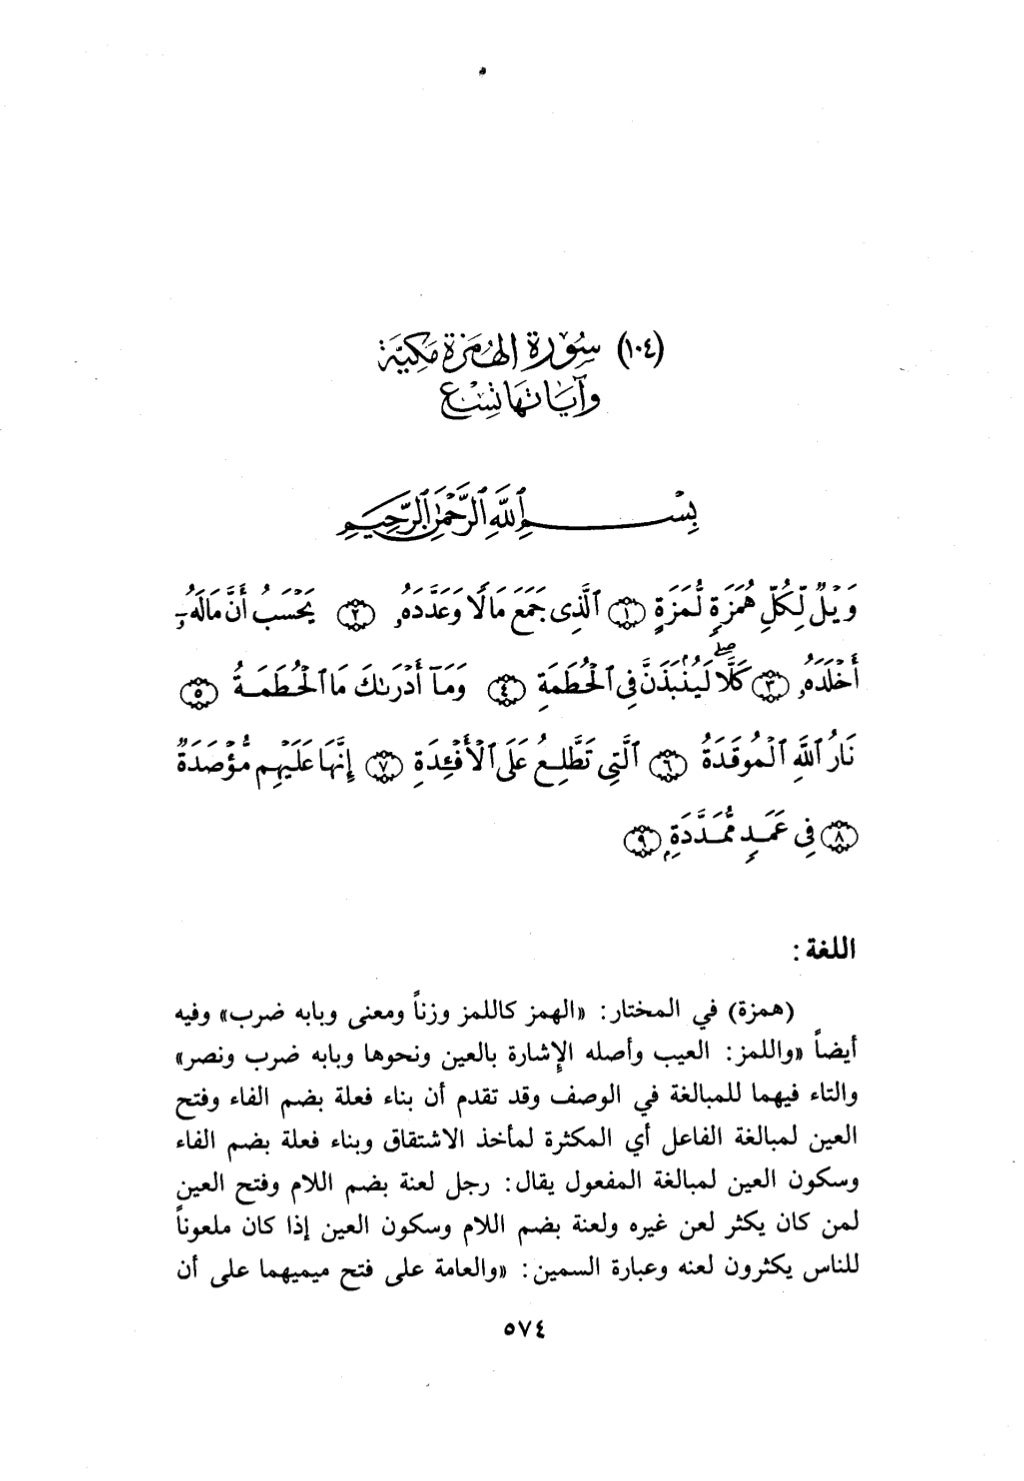 (١٠٤) سُورة الهُمَزة مَكيَّة
وآيَاتهَا تِسْع
بِسْمِ ٱللَّهِ ٱلرَّحْمَٰنِ ٱلرَّحِيمِ
وَيْلٌ لِّكُلِّ هُمَزَةٍ لُّمَزَةٍ ١ ٱلَّذِى جَمَعَ مَالًا وَعَدَّدَهُۥ ٢ يَحْسَبُ أَنَّ مَالَهُۥٓ
أَخْلَدَهُۥ ٣ كَلَّا ۖ لَيُنۢبَذَنَّ فِى ٱلْحُطَمَةِ ٤ وَمَآ أَدْرَىٰكَ مَا ٱلْحُطَمَةُ ٥
نَارُ ٱللَّهِ ٱلْمُوقَدَةُ ٦ ٱلَّتِى تَطَّلِعُ عَلَى ٱلْأَفْـِٔدَةِ ٧ إِنَّهَا عَلَيْهِم مُّؤْصَدَةٌ
٨ فِى عَمَدٍ مُّمَدَّدَةٍۭ ٩
اللغة :
(همزة) في المختار: «الهمز كاللمز وزناً ومعنى وبابه ضرب» وفيه
أيضاً «واللمز: العيب وأصله الإشارة بالعين ونحوها وبابه ضرب ونصر»
والتاء فيهما للمبالغة في الوصف وقد تقدم أن بناء فعلة بضم الفاء وفتح
العين لمبالغة الفاعل أي المكثرة لمأخذ الاشتقاق وبناء فعلة بضم الفاء
وسكون العين لمبالغة المفعول يقال: رجل لعنة بضم اللام وفتح العين
لمن كان يكثر لعن غيره ولعنة بضم اللام وسكون العين إذا كان ملعوناً
للناس يكثرون لعنه وعبارة السمين: «والعامة على فتح ميميهما على أن
٥٧٤